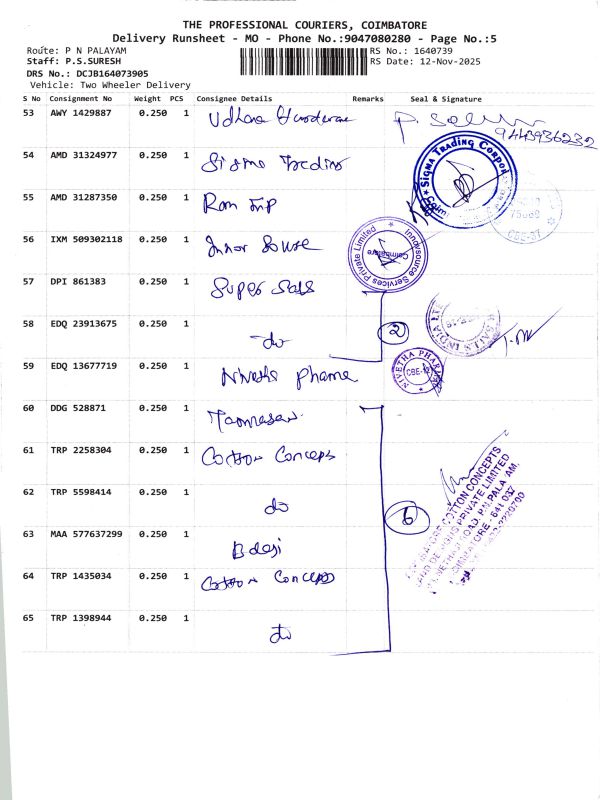 THE PROFESSIONAL COURIERS, COIMBATORE
Delivery Runsheet - MO - Phone No.:9047080280 - Page No.:5
Route: P N PALAYAM
RS No.: 1640739
Staff: P.S.SURESH
RS Date: 12-Nov-2025
DRS No.: DCJB164073905
Vehicle: Two Wheeler Delivery
S No Consignment No Weight PCS Consignee Details Remarks Seal & Signature
53 AWY 1429887 0.250 1
9443936232
54 AMD 31324977 0.250 1
SIGMA TRADING
55 AMD 31287350 0.250 1 Ram
56 IXM 509302118 0.250 1
Innovsource Services Private Limited
Coimbatore
57 DPI 861383 0.250 1 Super Sales
58 EDQ 23913675 0.250 1 do
2
SALES INDIA
59 EDQ 13677719 0.250 1 Nivetha Pharma
NIVETHA PHARMA
CBE-12
60 DDG 528871 0.250 1
61 TRP 2258304 0.250 1 Cotton Concepts
62 TRP 5598414 0.250 1 do
6
COTTON CONCEPTS
PRIVATE LIMITED
63 MAA 577637299 0.250 1
64 TRP 1435034 0.250 1 Cotton Concepts
65 TRP 1398944 0.250 1 do